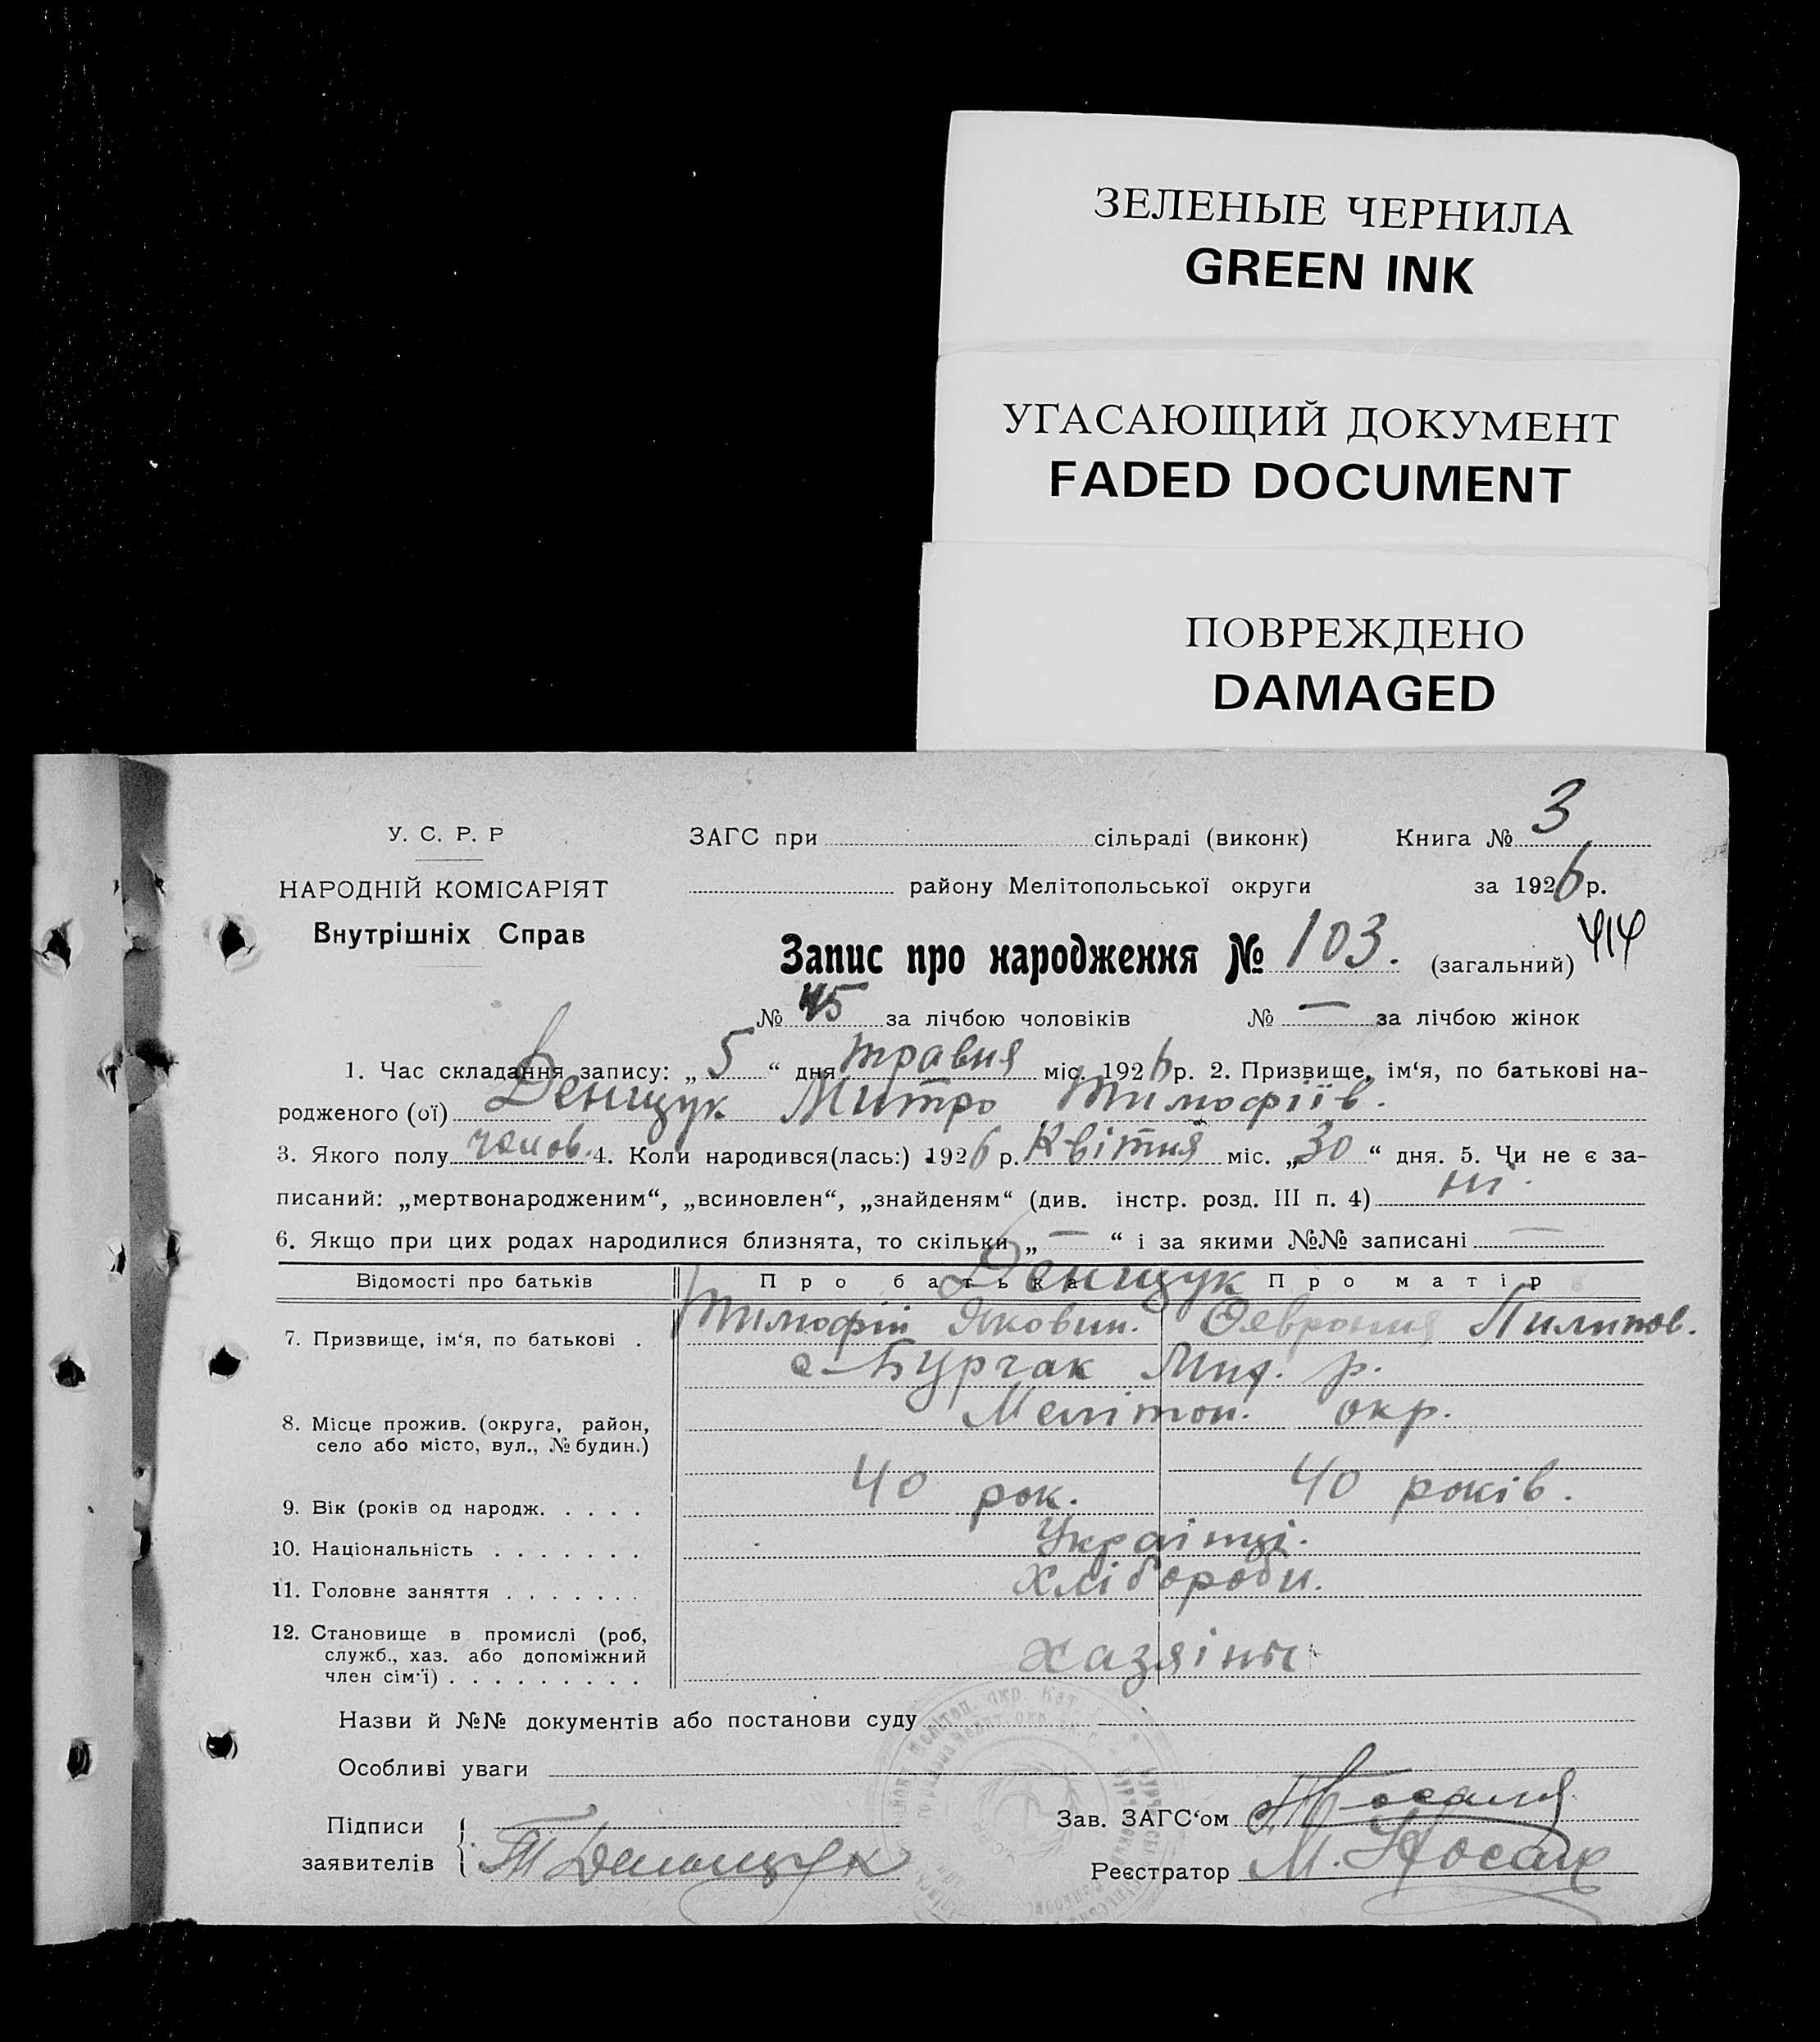 ЗЕЛЕНЫЕ ЧЕРНИЛА
GREEN INK
УГАСАЮЩИЙ ДОКУМЕНТ
FADED DOCUMENT
ПОВРЕЖДЕНО
DAMAGED
У. С. Р. Р
НАРОДНІЙ КОМІСАРІЯТ
Внутрішніх Справ
ЗАГС при сільраді (виконк) Книга № 3
району Мелітопольської округи за 1926 р.
Запис про народження № 103. (загальний) 414
№ 45 за лічбою чоловіків № — за лічбою жінок
1. Час складання запису: „ 5 “ дня травня міс. 1926 р. 2. Призвище, ім‘я, по батькові на-
родженого (ої) Денищук Митро Тимофіїв.
3. Якого полу чолов. 4. Коли народився(лась:) 1926 р. Квітня міс. „30“ дня. 5. Чи не є за-
писаний: „мертвонародженим“, „всиновлен“, „знайденям“ (див. інстр. розд. III п. 4) ні.
6. Якщо при цих родах народилися близнята, то скільки „ — “ і за якими №№ записані —
Відомості про батьків Про батька Про матір
Денищук
7. Призвище, ім‘я, по батькові . Тимофій Якович. Пилипов.
с-Бурчак Мих. р.
8. Місце прожив. (округа, район,
село або місто, вул., № будин.) Мелітоп. окр.
9. Вік (років од народж. . . . . 40 рок. 40 років.
10. Національність . . . . . . . Українці.
11. Головне заняття . . . . . . . Хлібороби.
12. Становище в промислі (роб,
служб., хаз. або допоміжний
член сім‘ї) . . . . . . . . . Хазяїни
Назви й №№ документів або постанови суду
Особливі уваги
Підписи
заявителів
Т Денищук
Зав. ЗАГС‘ом
Реєстратор М. Носаль